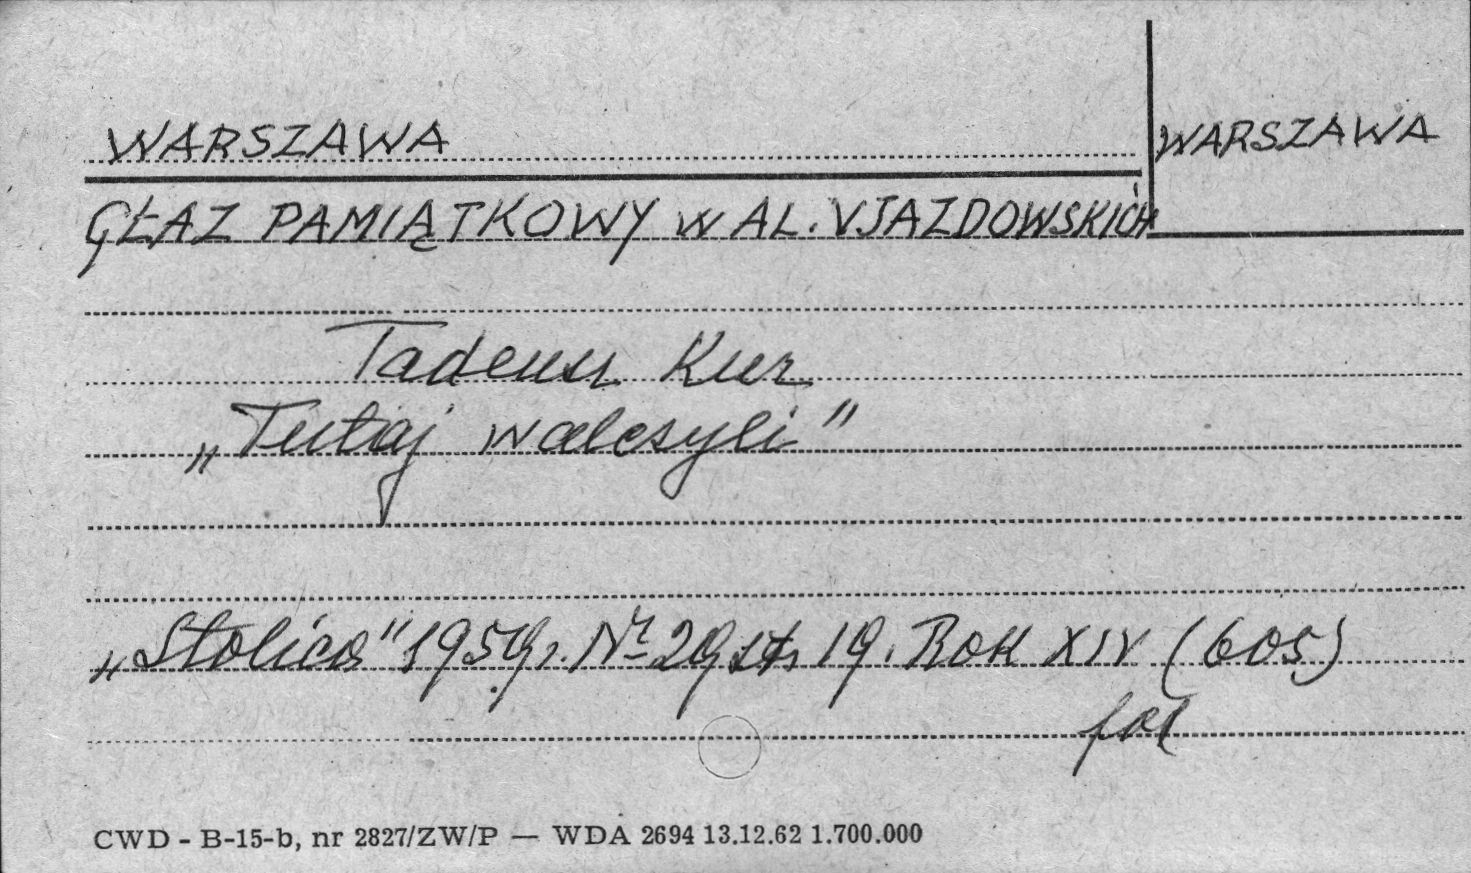 WARSZAWA
WARSZAWA
GŁAZ PAMIĄTKOWY W AL. UJAZDOWSKICH
Tadeusz Kur
„Tutaj walczyli”
„Stolica” 1959 r. Nr 29 str 19. Rok XIV (605)
fot
CWD - B-15-b, nr 2827/ZW/P — WDA 2694 13.12.62 1.700.000